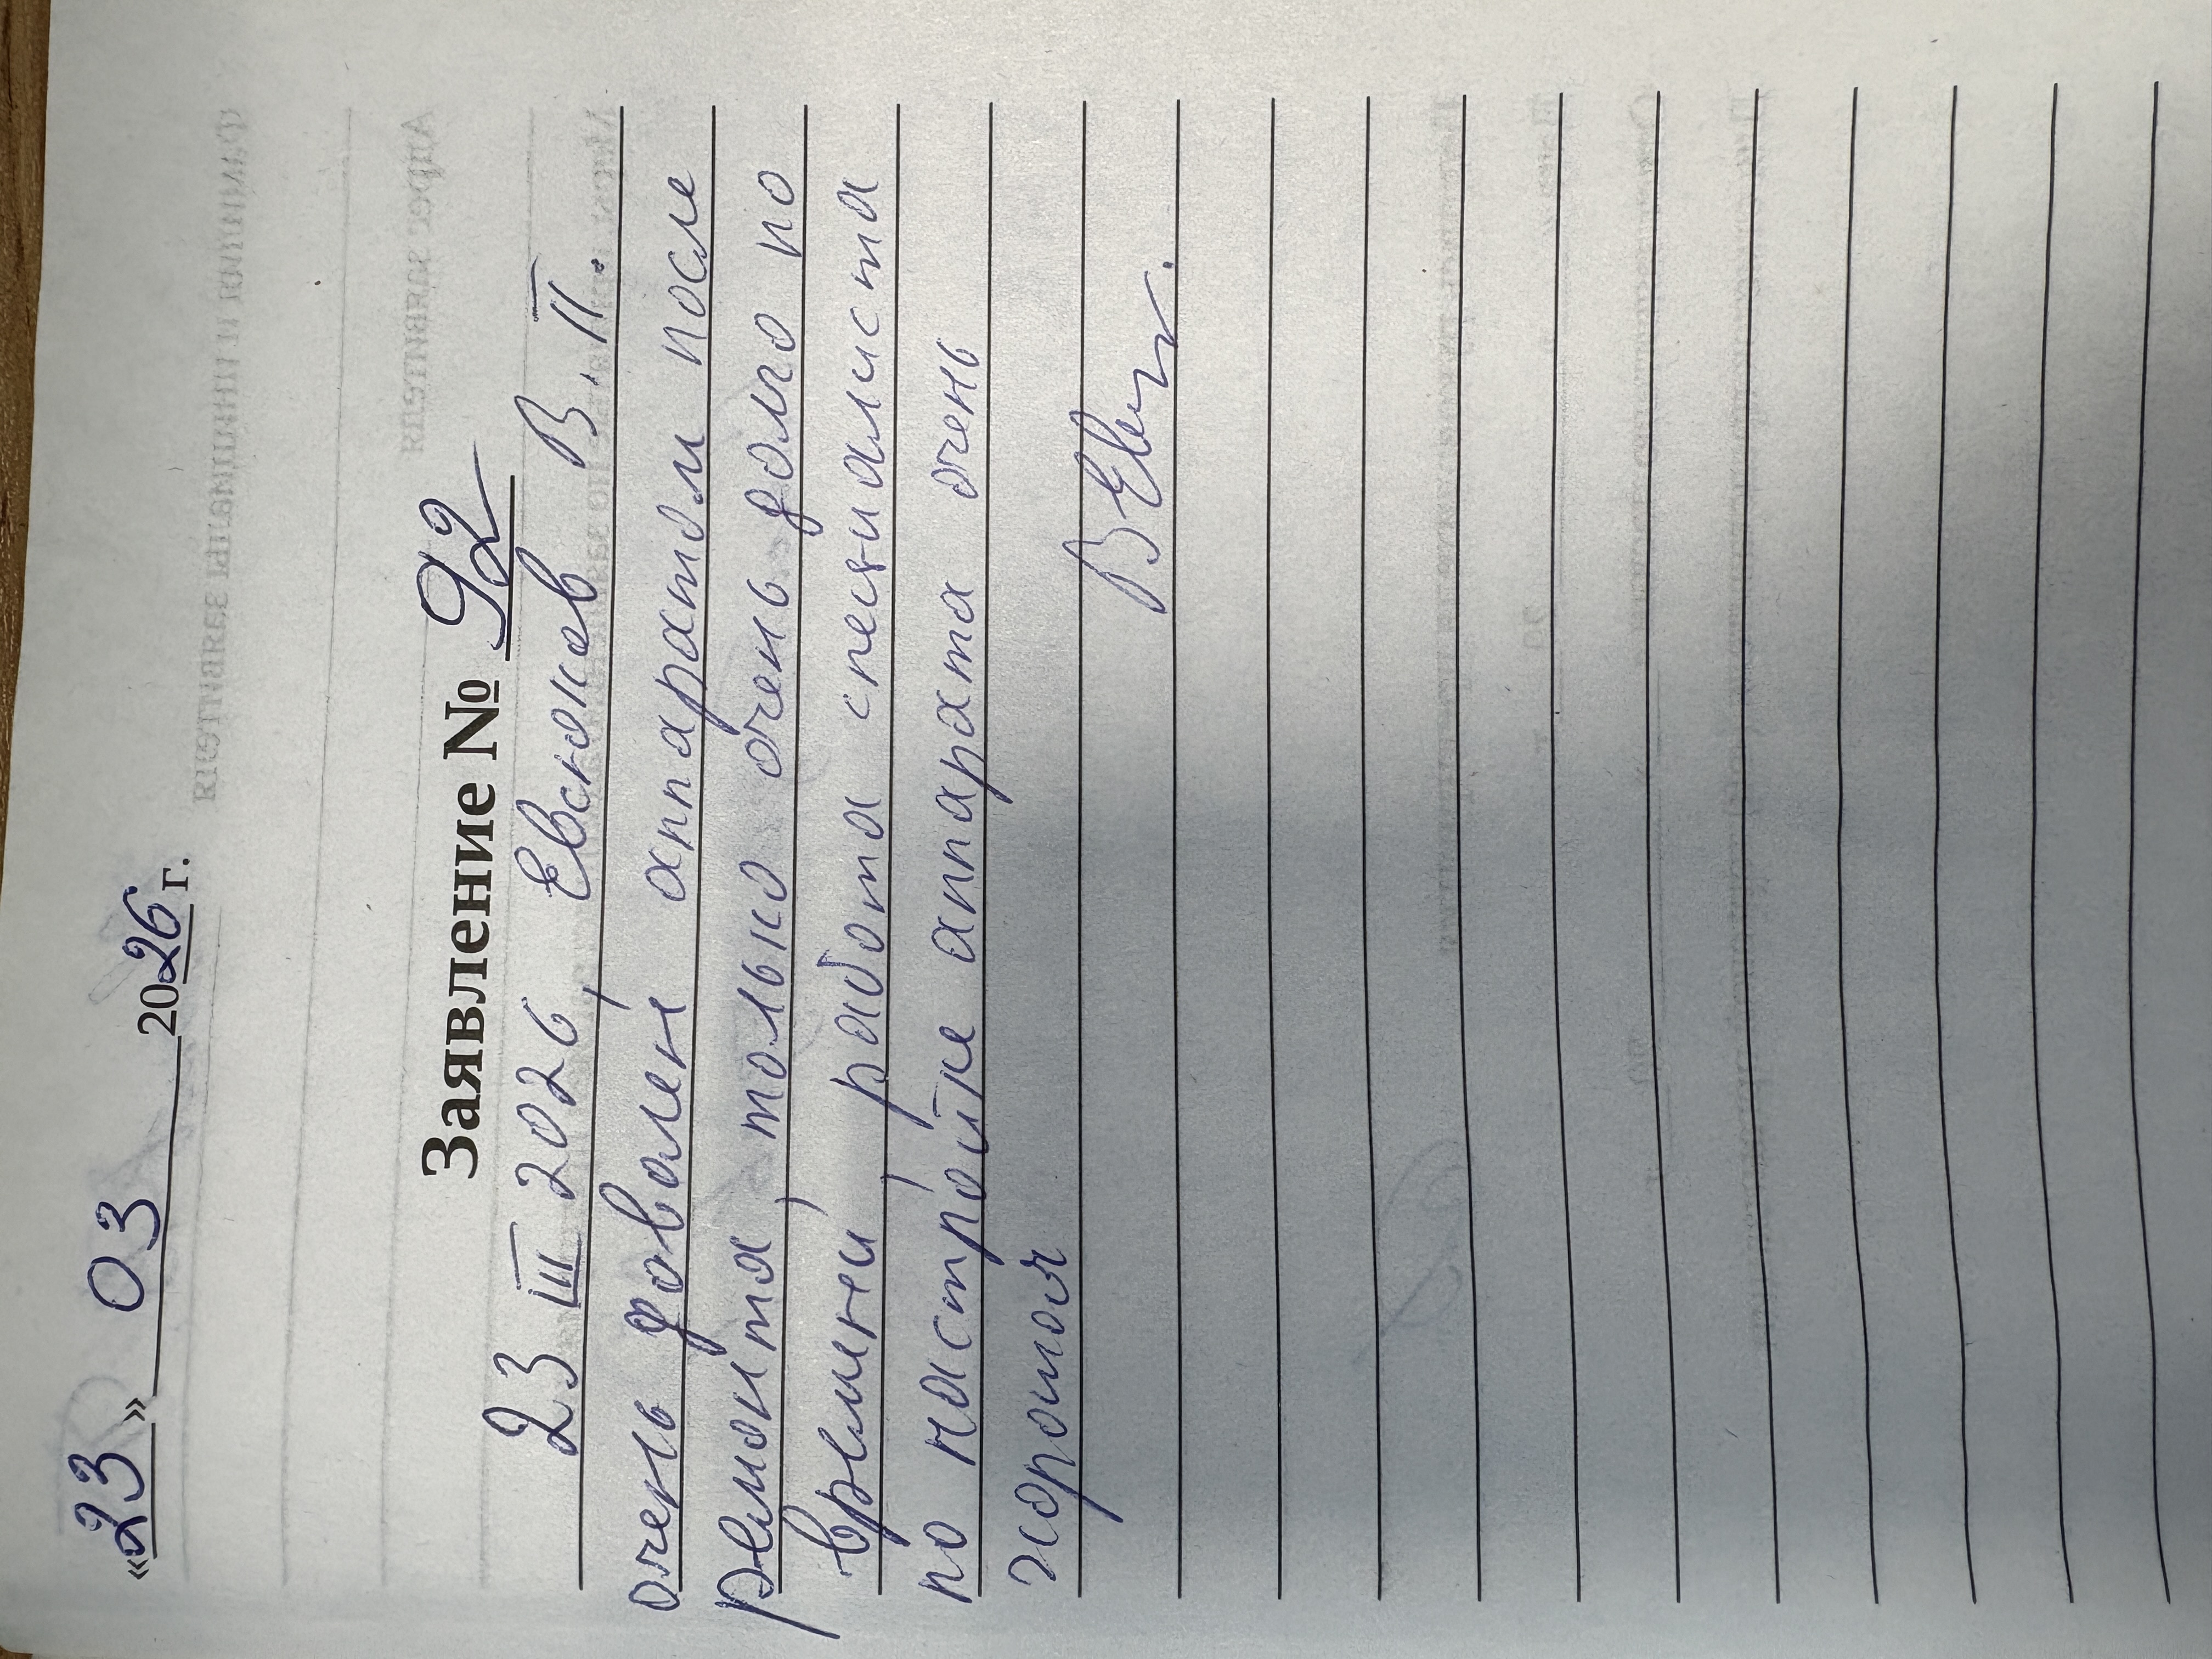 «23» 03 2026 г.
Заявление № 92
23 III 2026, Евсюков В. П.
очень доволен аппаратом после
ремонта, только очень долго по
времени, работа специалиста
по настройке аппарата очень
хорошая